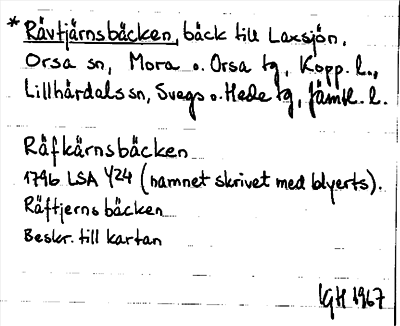 * Rävtjärnsbäcken, bäck till Laxsjön,
Orsa sn, Mora o. Orsa tg, Kopp. l.,
Lillhärdals sn, Svegs o. Hede tg, Jämtl. l.
Räfkärnsbäcken
1796 LSA Y24 (namnet skrivet med blyerts).
Räftjernsbäcken
Beskr. till kartan
IGH 1967